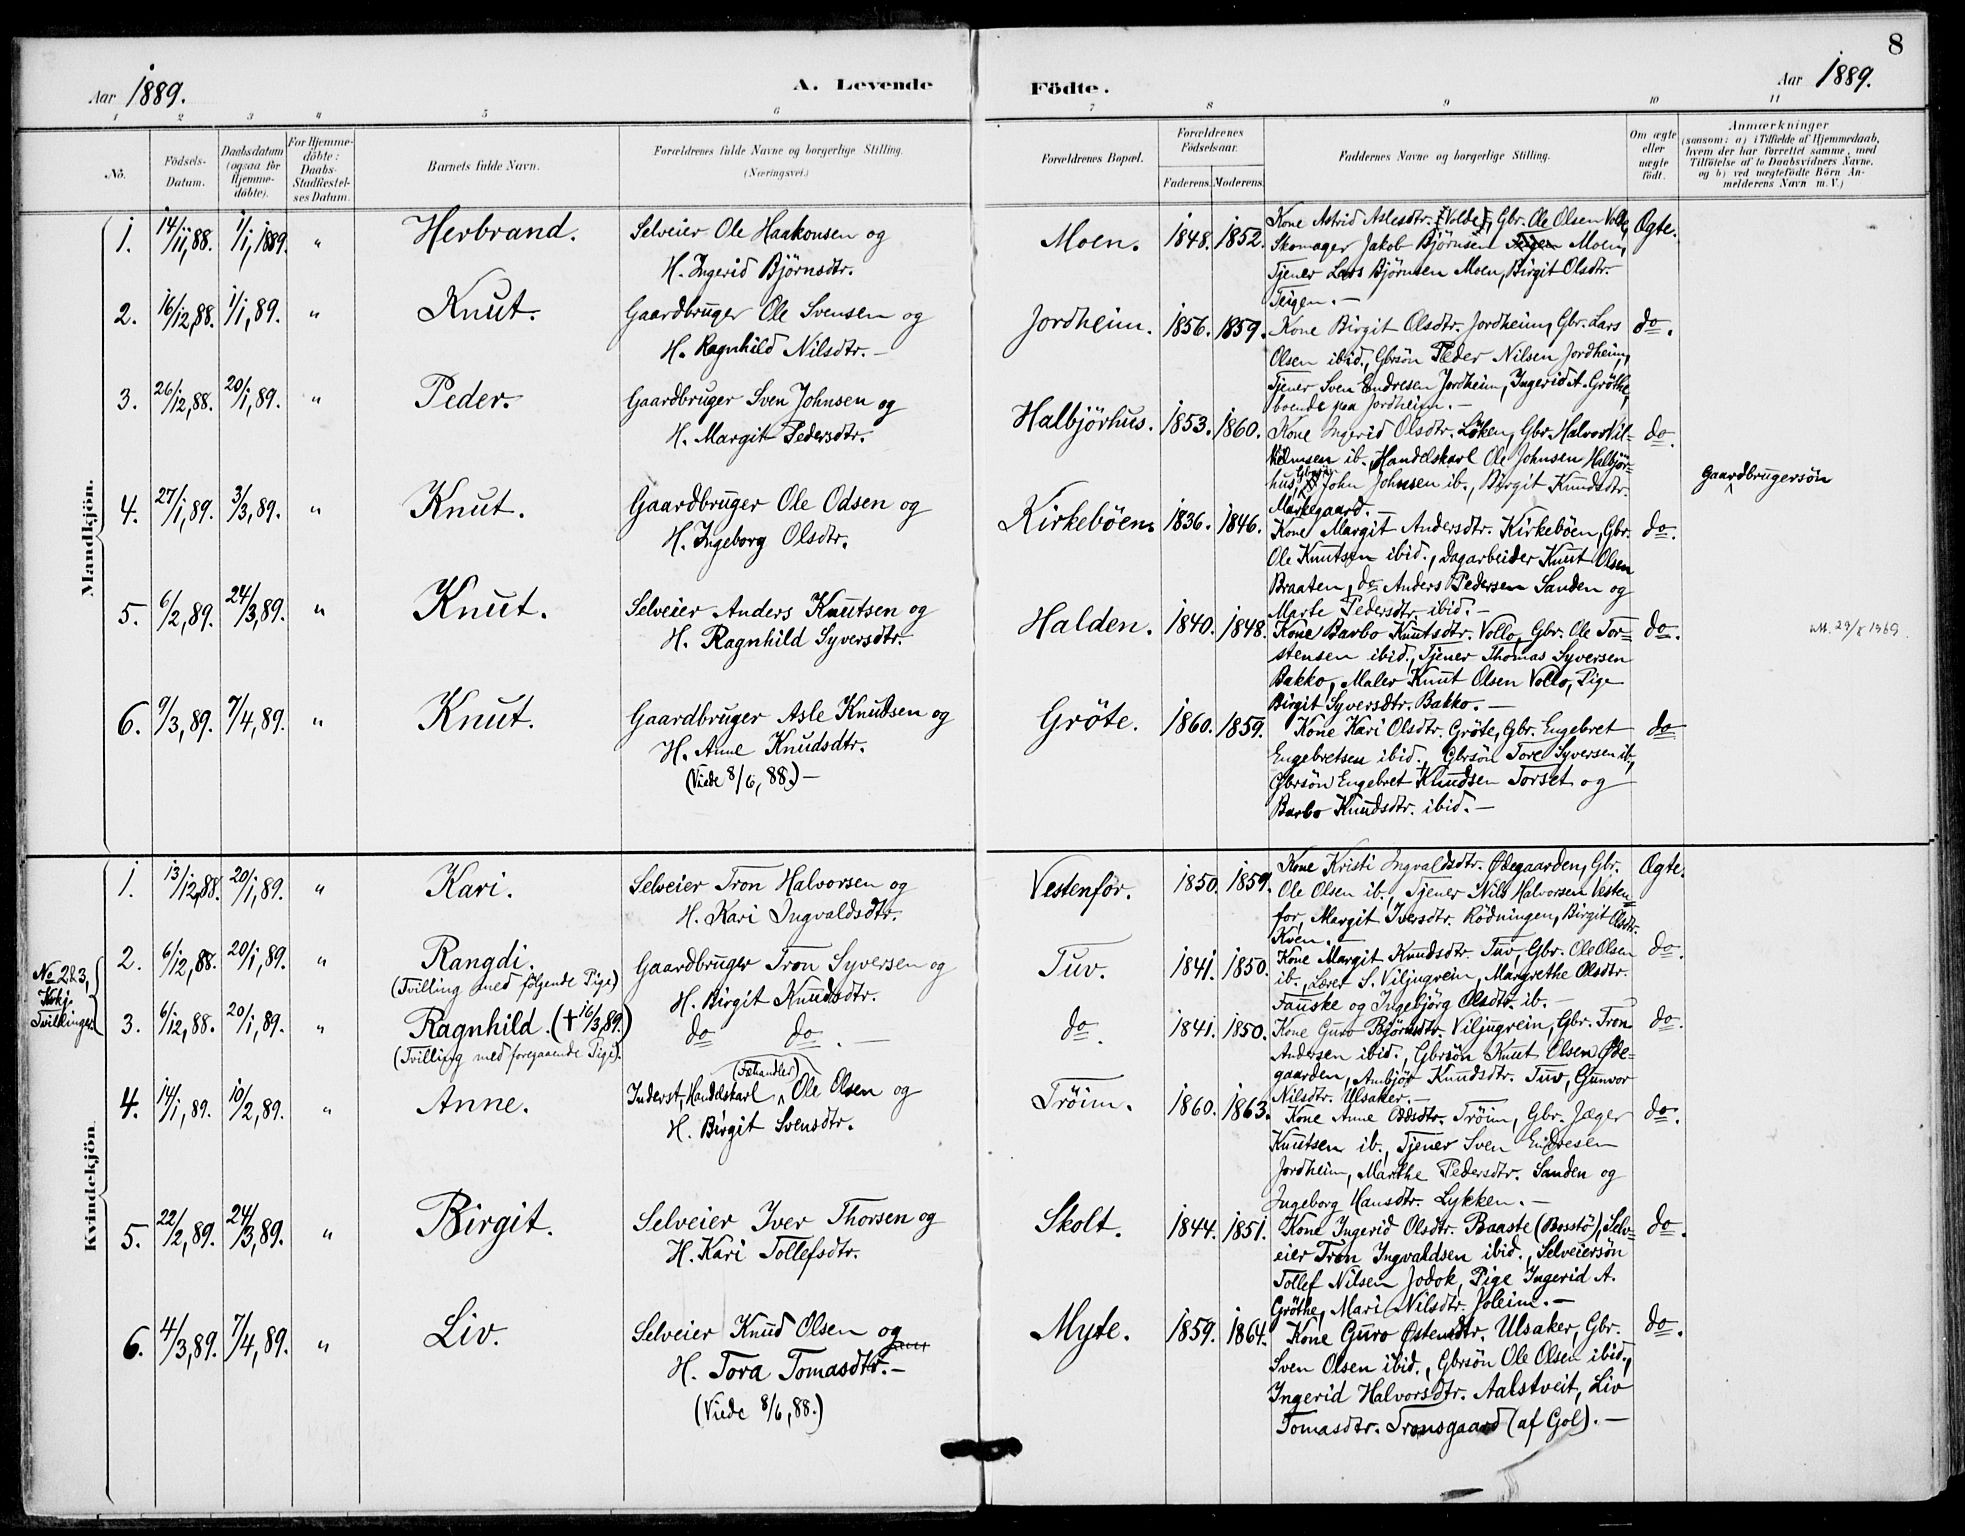 8
Aar 1889.
A. Levende
Födte.
Aar 1889.
1 2 3 4 5 6 7 8 9 10 11
No.
Födsels-Datum.
Daabsdatum (ogsaa for Hjemme-döbte).
For Hjemme-döbte: Daabs-Stadfæstel-ses Datum.
Barnets fulde Navn.
Forældrenes fulde Navne og borgerlige Stilling.
(Næringsvei.)
Forældrenes Bopæl.
Forældrenes Födselsaar.
Faderens. Moderens.
Faddernes Navne og borgerlige Stilling.
Om ægte eller uægte födt.
Anmærkninger
(saasom: a) i Tilfælde af Hjemmedaab,
hvem der har forrettet samme, med
Tilföielse af to Daabsvidners Navne,
og b) ved uægtefödte Börn An-
melderens Navn m. V.)
Mandkjön.
1. 14/11, 88. 1/1, 1889. " Herbrand. Selveier Ole Haakonsen og
H. Ingerid Björnsdtr.
Moen. 1848. 1852. Kone Astrid Aslesdtr. (Volde), Gbr. Ole Olsen Vollo, Ægte.
Skomager Jakob Björnsen Moen,
Tjener Lars Björnsen Moen, Birgit Olsdtr.
Teigen. —
2. 16/12, 88. 1/1, 89. " Knut. Gaardbruger Ole Svensen og
H. Ragnhild Nilsdtr. —
Jordheim. 1856. 1859. Kone Birgit Olsdtr. Jordheim, Gbr. Lars do.
Olsen ibid., Gbrsön Peder Nilsen Jordheim,
Tjener Sven Endresen Jordheim, Ingerid A. Gröthe,
boende paa Jordheim. —
3. 26/12, 88. 20/1, 89. " Peder. Gaardbruger Sven Johnsen og
H. Margit Pedersdtr.
Halbjörhus. 1853. 1860. Kone Ingerid Olsdtr. Löken, Gbr. Halvor Vil- do.
helmsen ib., Handelskarl Ole Johnsen Halbjör-
hus, Gbrsön John Johnsen ib., Birgit Knudsdtr.
Markegaard. —
Gaardbrugersön
4. 27/1, 89. 3/3, 89. " Knut. Gaardbruger Ole Odsen og
H. Ingeborg Olsdtr.
Kirkeböen. 1836. 1846. Kone Margit Andersdtr. Kirkeböen, Gbr. do.
Ole Knutsen ibid., Dagarbeider Knut Olsen
Braaten, do Anders Pedersen Sanden og
Marte Pedersdtr. ibid. —
5. 6/2, 89. 24/3, 89. " Knut. Selveier Anders Knutsen og
H. Ragnhild Syversdtr.
Halden. 1840. 1848. Kone Barbo Knutsdtr. Vollo, Gbr. Ole Tor- do.
stensen ibid., Tjener Thomas Syversen
Bakko, Maler Knut Olsen Vollo, Pige
Birgit Syversdtr. Bakko. —
6. 9/3, 89. 7/4, 89. " Knut. Gaardbruger Asle Knudsen og
H. Anne Knudsdtr.
(Viede 8/6, 88.) —
Gröte. 1860. 1859. Kone Kari Olsdtr. Gröte, Gbr. Engebret do
Engebretsen ibid., Gbrsön Tore Syversen ib.,
Gbrsön Engebret Knudsen Torset og
Barbo Knudsdtr. ibid. —
Kvindekjön.
1. 13/12, 88. 20/1, 89. " Kari. Selveier Tron Halvorsen og
H. Kari Ingvaldsdtr.
Vestenfor. 1850. 1859. Kone Kristi Ingvaldsdtr. Ødegaarden, Gbr. Ægte.
Ole Olsen ib., Tjener Nils Halvorsen Vesten-
for, Margit Iversdtr. Rödningen, Birgit Olsdtr.
Kven. —
No 2 & 3,
Tvillinger.
2. 6/12, 88. 20/1, 89. " Rangdi. Gaardbruger Tron Syversen og
(Tvilling med fölgende Pige)
H. Birgit Knudsdtr.
Tuv. 1841. 1850. Kone Margit Knudsdtr. Tuv, Gbr. Ole Olsen do.
ib., Lærer S. Viljugrein, Margrethe Olsdtr.
Fauske og Ingebjörg Olsdtr. ib. —
3. 6/12, 88. 20/1, 89. " Ragnhild. († 16/3, 89.) do do. —
(Tvilling med foregaaende Pige).
do. 1841. 1850. Kone Guro Björnsdtr. Viljugrein, Gbr. Tron do.
Andersen ibid., Gbrsön Knut Olsen Øde-
gaarden, Ambjör Knudsdtr. Tuv, Gunvor
Nilsdtr. Ulsaker. —
4. 14/1, 89. 10/2, 89. " Anne. Inderst, Handelskarl (Fæhandler) Ole Olsen og
H. Birgit Svensdtr.
Tröim. 1860. 1863. Kone Anne Oddsdtr. Tröim, Gbr. Jæger do.
Knutsen ib., Tjener Sven Endresen
Jordheim, Marthe Pedersdtr. Sanden og
Ingeborg Hansdtr. Lykken. —
5. 22/2, 89. 24/3, 89. " Birgit. Selveier Iver Thorsen og
H. Kari Tollefsdtr.
Skolt. 1844. 1851. Kone Ingerid Olsdtr. Baaste (Bosstö), Selv- do.
eier Tron Ingvaldsen ibid., Selveiersön
Tollef Nilsen Jodok, Pige Ingerid A.
Gröthe, Mari Nilsdtr. Joleim. —
6. 4/3, 89. 7/4, 89. " Liv. Selveier Knud Olsen og
H. Tora Tomasdtr. —
(Viede 8/6, 88.)
Myte. 1859. 1864. Kone Guro Østensdtr. Ulsaker, Gbr. do.
Sven Olsen ibid., Gbrsön Ole Olsen ibid.,
Ingerid Halvorsdtr. Aalstveit, Liv
Tomasdtr. Tronsgaard (af Gol). —